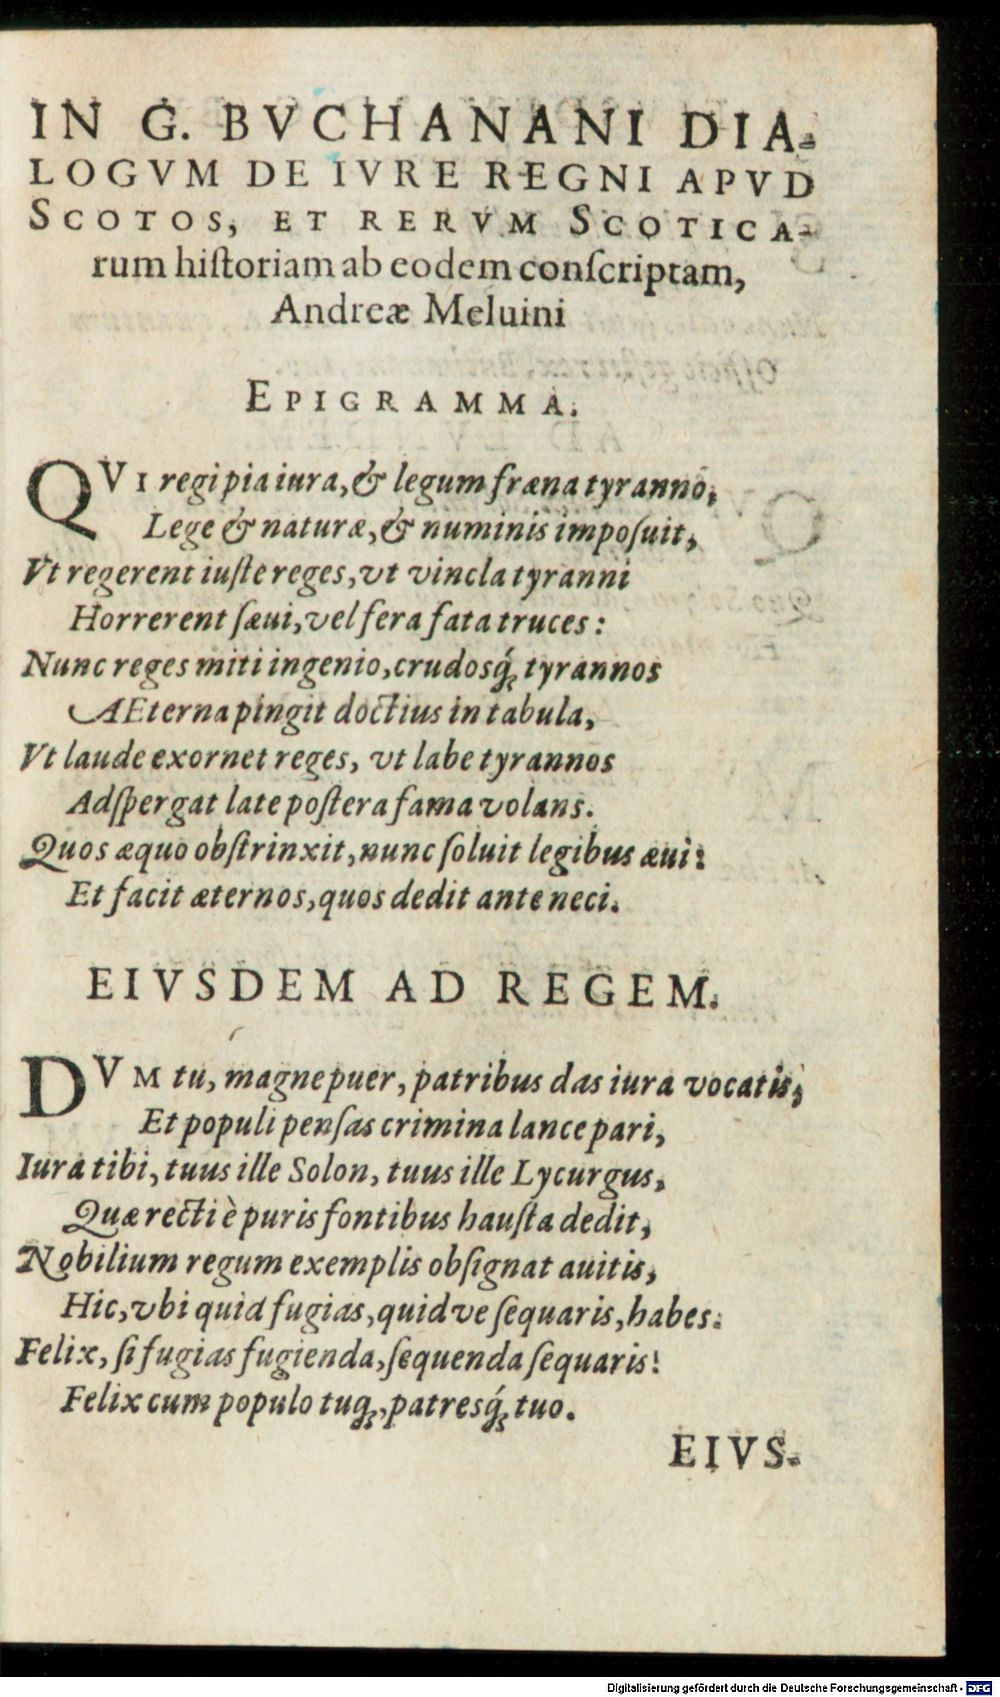 IN G. BVCHANANI DIA-
LOGVM DE IVRE REGNI APVD
SCOTOS, ET RERVM SCOTICA-
rum hiſtoriam ab eodem conſcriptam,
Andreæ Meluini
EPIGRAMMA.
QVI regi pia iura, & legum fræna tyranno,
Lege & naturæ, & numinis impoſuit,
Vt regerent iuſte reges, vt vincla tyranni
Horrerent ſæui, vel fera fata truces:
Nunc reges miti ingenio, crudosq́ꝫ tyrannos
AEterna pingit doctius in tabula,
Vt laude exornet reges, vt labe tyrannos
Adſpergat late poſtera fama volans.
Quos æquo obſtrinxit, nunc ſoluit legibus æui:
Et facit æternos, quos dedit ante neci.
EIVSDEM AD REGEM.
DVM tu, magne puer, patribus das iura vocatis,
Et populi penſas crimina lance pari,
Iura tibi, tuus ille Solon, tuus ille Lycurgus,
Quæ recti è puris fontibus hauſta dedit,
Nobilium regum exemplis obſignat auitis,
Hic, vbi quid fugias, quidve ſequaris, habes.
Felix, ſi fugias fugienda, ſequenda ſequaris!
Felix cum populo tuqꝫ, patresq́ꝫ tuo.
EIVS-
Digitalisierung gefördert durch die Deutsche Forschungsgemeinschaft - DFG